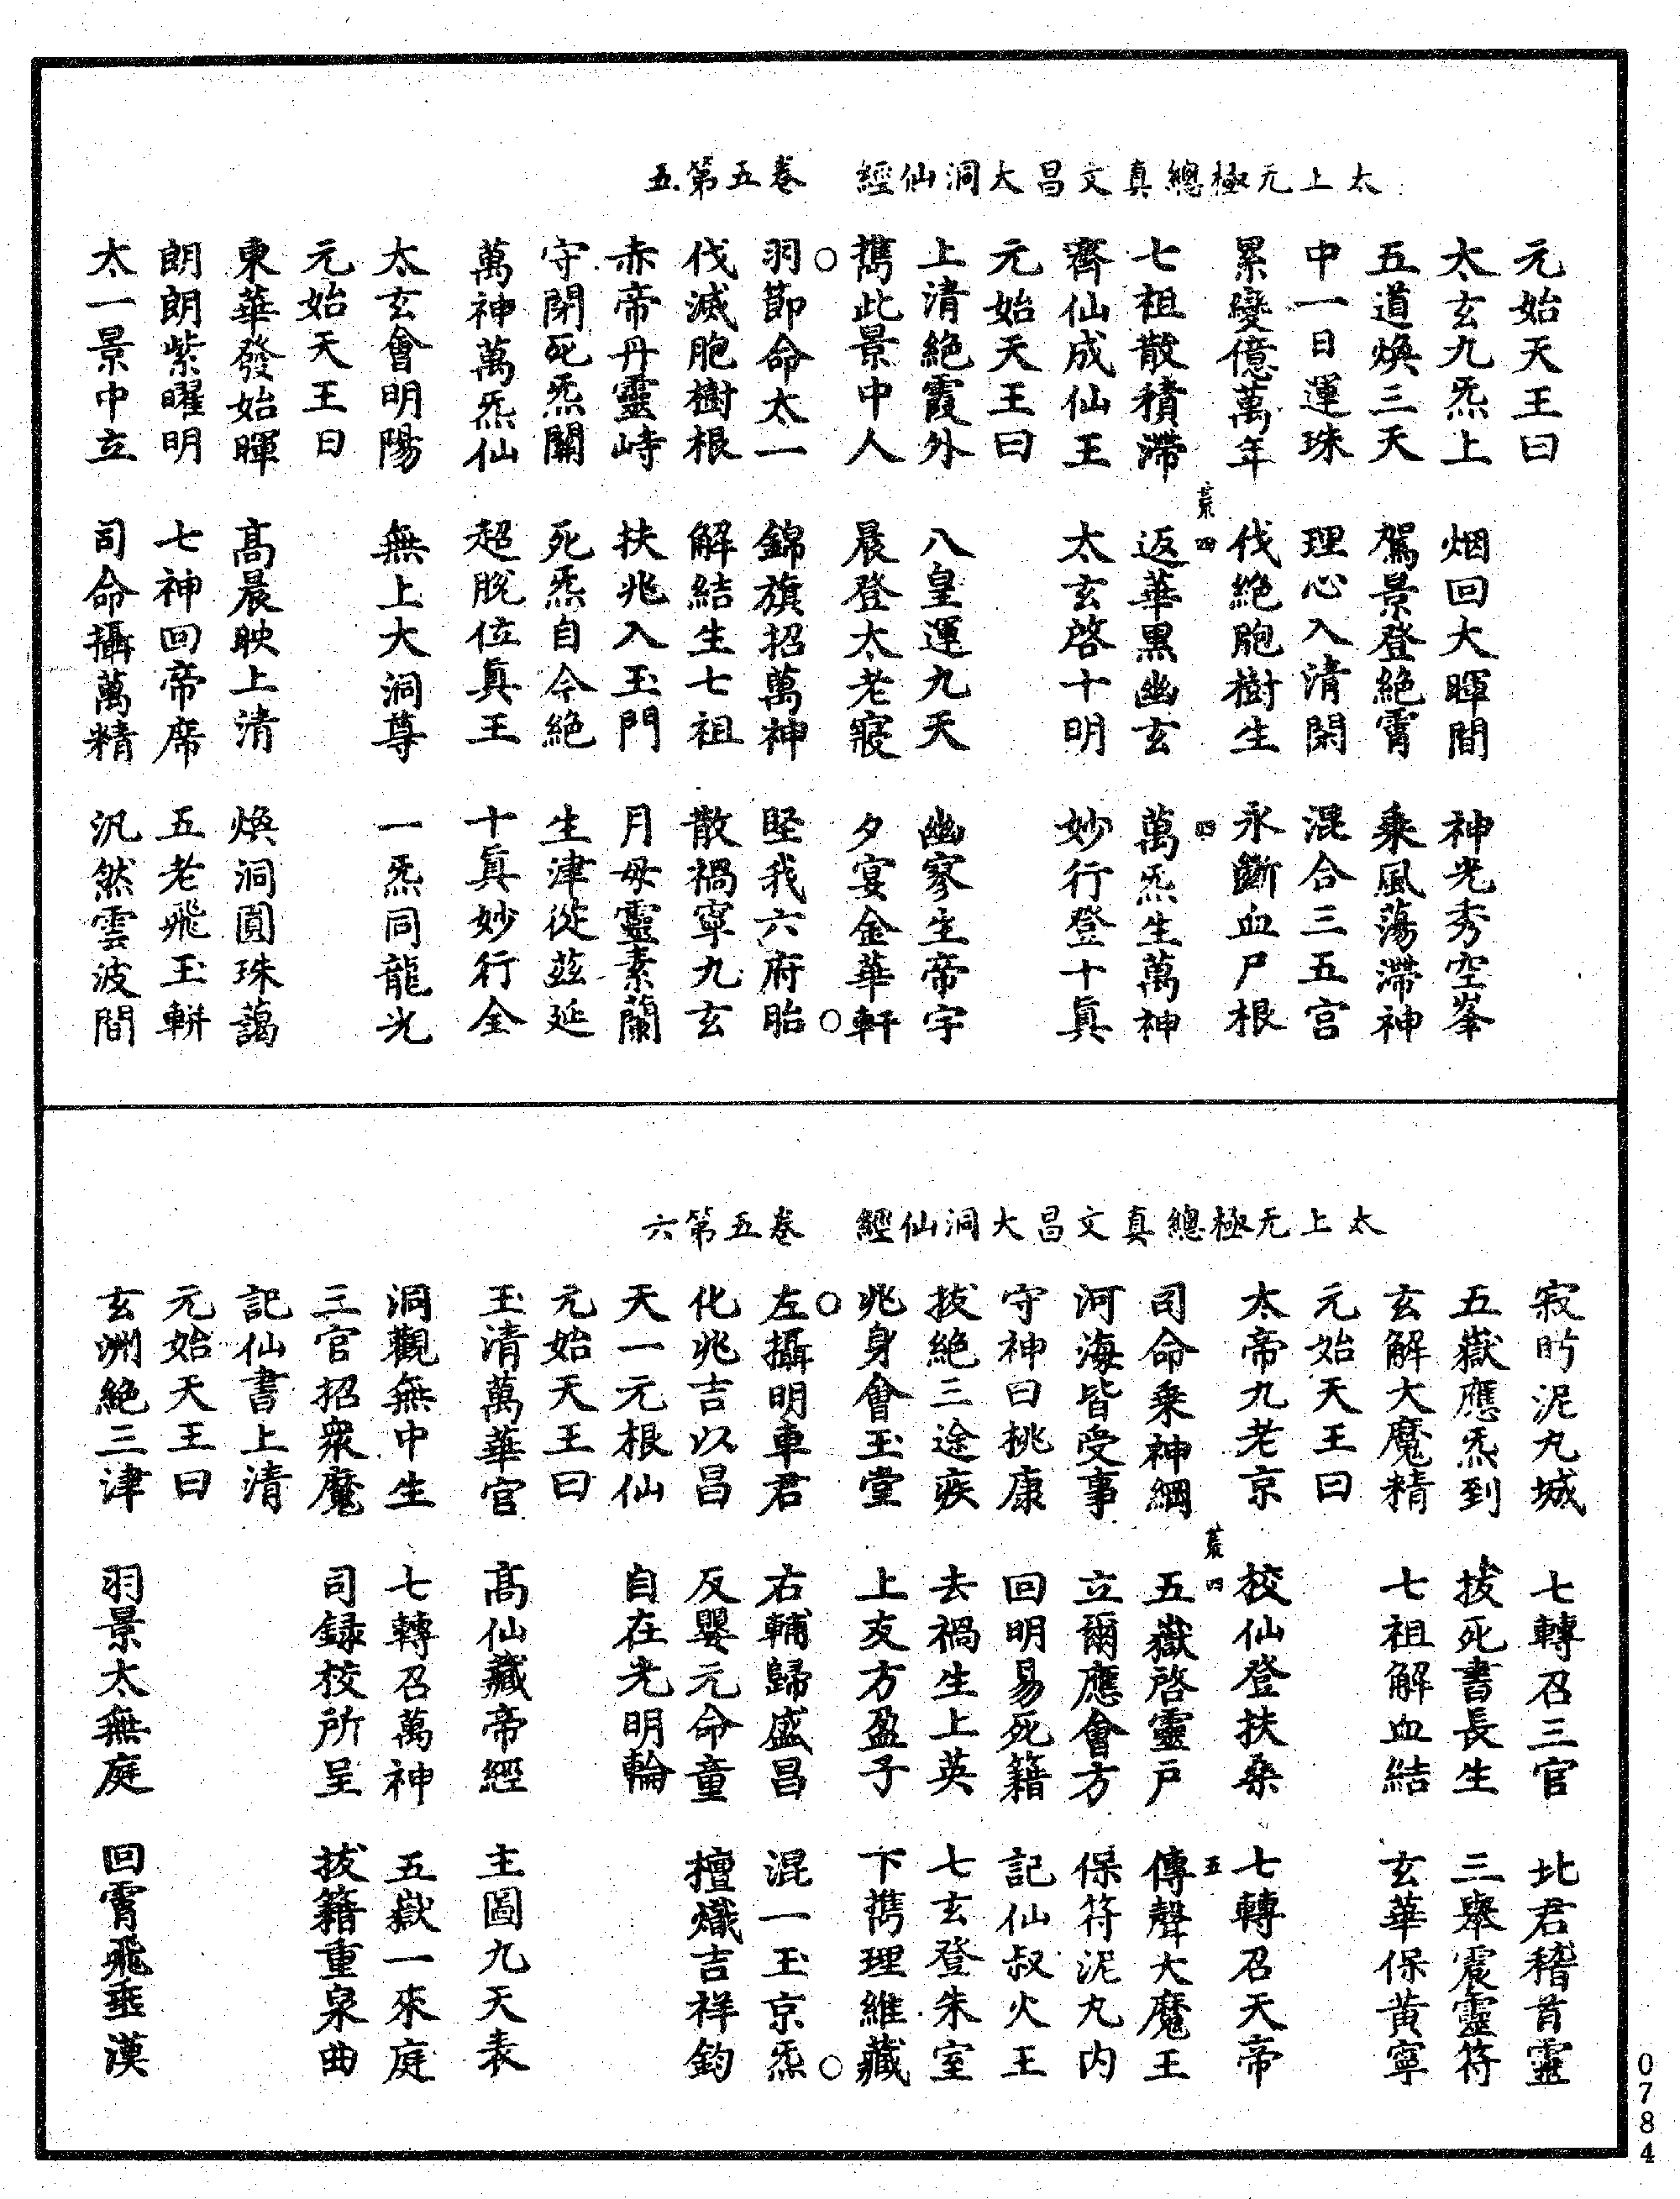 太上元極總真文昌大洞仙經　卷五第五
元始天王曰
太玄九炁上　烟回大暉間　神光秀空峯
五道煥三天　駕景登絕霄　乘風蕩滯神
中一日運珠　理心入清閑　混合三五宮
累變億萬年　伐絕胞樹生　永斷血尸根
七祖散積滯　返華黑幽玄　萬炁生萬神
齊仙成仙王　太玄啓十明　妙行登十眞
元始天王曰
上清絕霞外　八皇運九天　幽寥生帝宇
攜此景中人　晨登太老寢　夕宴金華軒
羽節命太一　錦旗招萬神　堅我六府胎
伐滅胞樹根　解結生七祖　散禍寧九玄
赤帝丹靈峙　扶兆入玉門　月母靈素蘭
守閉死炁關　死炁自今絕　生津從茲延
萬神萬炁仙　超脫位眞王　十眞妙行全
太玄會明陽　無上大洞尊　一炁同龍光
元始天王曰
東華發始暉　高晨映上清　煥洞圓珠藹
朗朗紫曜明　七神回帝席　五老飛玉輧
太一景中立　司命攝萬精　汎然雲波間
太上元極總真文昌大洞仙經　卷五第六
寂昈泥丸城　七轉召三官　北君稽首靈
五嶽應炁到　拔死書長生　三舉震靈符
玄解大魔精　七祖解血結　玄華保黃寧
元始天王曰
太帝九老京　校仙登扶桑　七轉召天帝
司命乘神綱　五嶽啓靈戶　傳聲大魔王
河海皆受事　立爾應會方　保符泥丸內
守神曰桃康　回明易死籍　記仙叔火王
拔絕三途疾　去禍生上英　七玄登朱室
兆身會玉堂　上友方盈子　下攜理維藏
左攝明車君　右輔歸盛昌　混一玉京炁
化兆吉以昌　反嬰元命童　擅熾吉祥鈞
天一元根仙　自在光明輪
元始天王曰
玉清萬華宮　高仙藏帝經　主圖九天表
洞觀無中生　七轉召萬神　五嶽一來庭
三官招衆魔　司錄校所呈　拔籍重泉曲
記仙書上清
元始天王曰
玄洲絕三津　羽景太無庭　回霄飛垂漢
0784